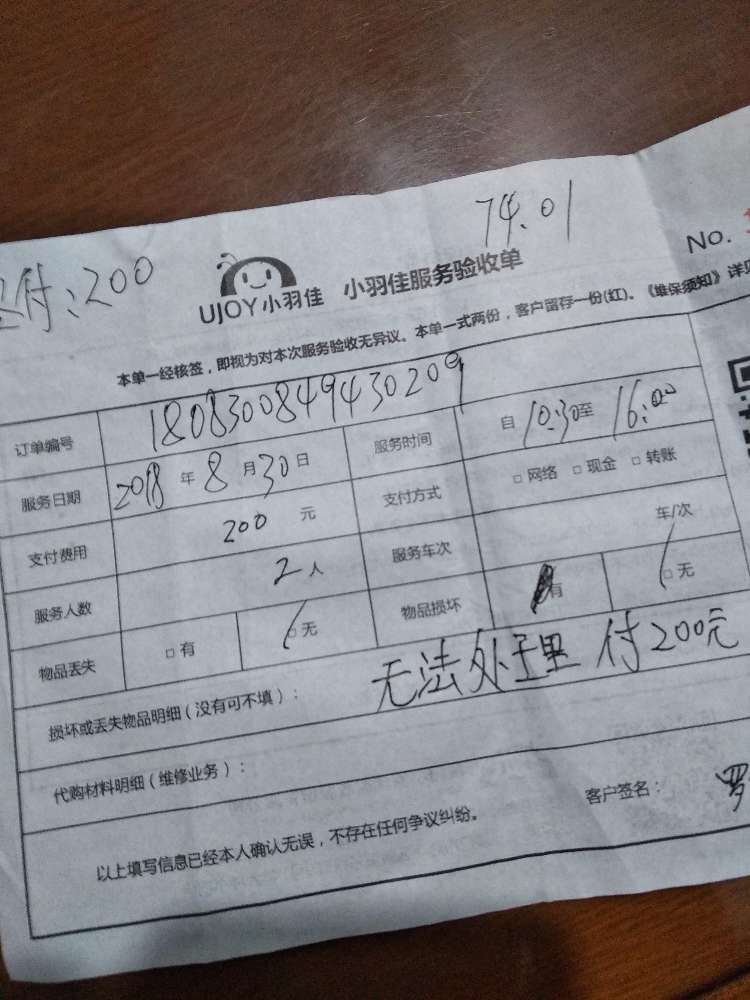 74.01
付:200
UJOY小羽佳 小羽佳服务验收单 No.
本单一经核签，即视为对本次服务验收无异议。本单一式两份，客户留存一份(红)。《维保须知》详见
订单编号 1808300849430209
服务日期 2018年8月30日 服务时间 自10:30至16:00
支付费用 200元 支付方式 □网络 □现金 □转账
服务人数 2人 服务车次 车/次
物品丢失 □有 □无 物品损坏 有 □无
损坏或丢失物品明细（没有可不填）： 无法处理 付200元
代购材料明细（维修业务）：
以上填写信息已经本人确认无误，不存在任何争议纠纷。 客户签名： 罗